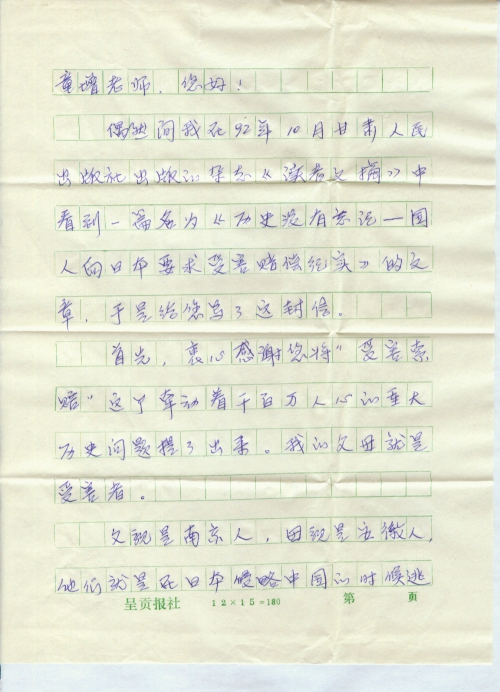 童增老师，您好！
偶然间我在92年10月甘肃人民
出版社出版的杂志《读者文摘》中
看到一篇名为《历史没有忘记—国
人向日本要求受害赔偿纪实》的文
章，于是给您写了这封信。
首先，衷心感谢您将"受害索
赔"这个牵动着千百万人心的重大
历史问题提了出来。我的父母就是
受害者。
父亲是南京人，母亲是安徽人，
他们就是在日本侵略中国的时候逃
呈贡报社 12×15=180 第 页